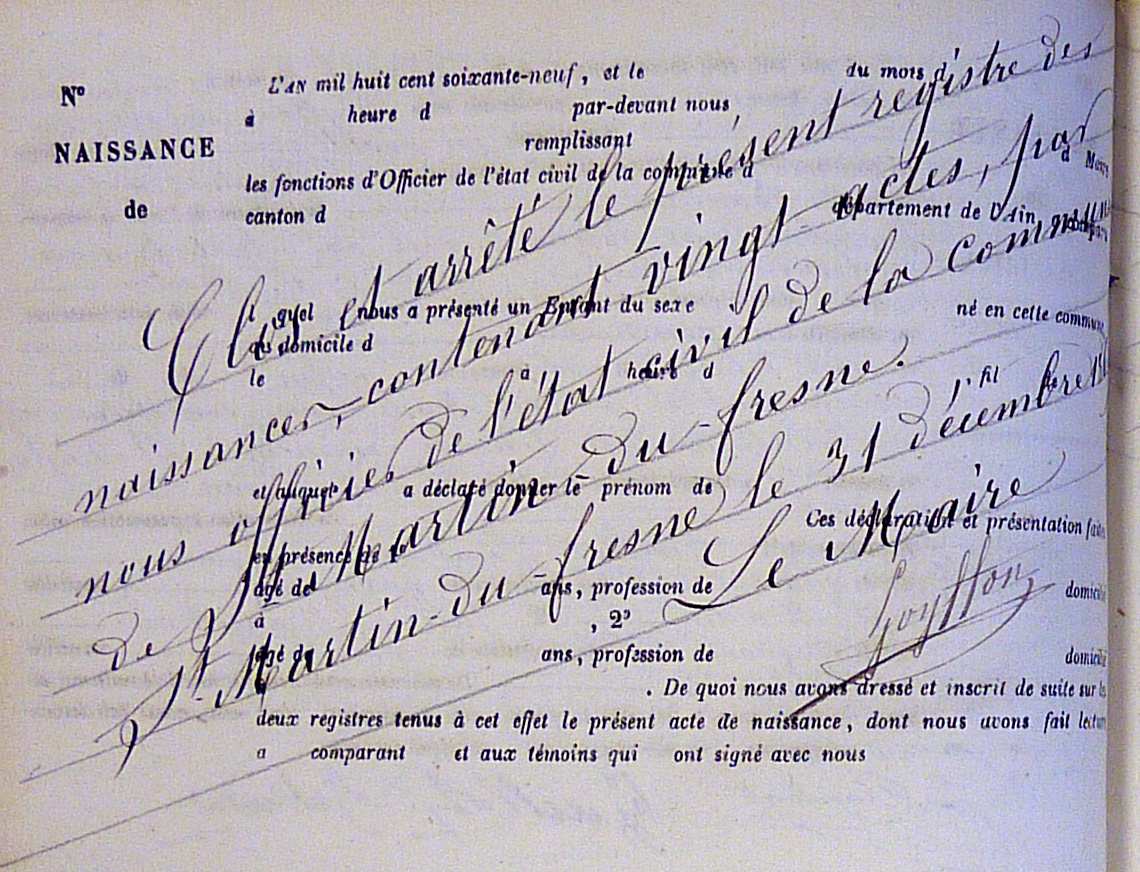 L'AN mil huit cent soixante-neuf, et le du mois d
N° à heure d par-devant nous,
NAISSANCE remplissant
les fonctions d'Officier de l'état civil de la commune d
de canton d département de l'Ain,
l quel nous a présenté un Enfant du sexe né en cette commune
au domicile d
le à heure d
fil
et auquel a déclaré donner le prénom de
Ces déclaration et présentation faites
en présence de 1°
âgé de ans, profession de domicilié
à , 2°
âgé de ans, profession de domicilié
. De quoi nous avons dressé et inscrit de suite sur les
deux registres tenus à cet effet le présent acte de naissance, dont nous avons fait lecture
a comparant et aux témoins qui ont signé avec nous
Clos et arrêté le présent registre des
naissances, contenant vingt actes, par
nous officier de l'état civil de la commune
de St Martin-du-fresne.
St Martin-du-fresne le 31 décembre
Le Maire